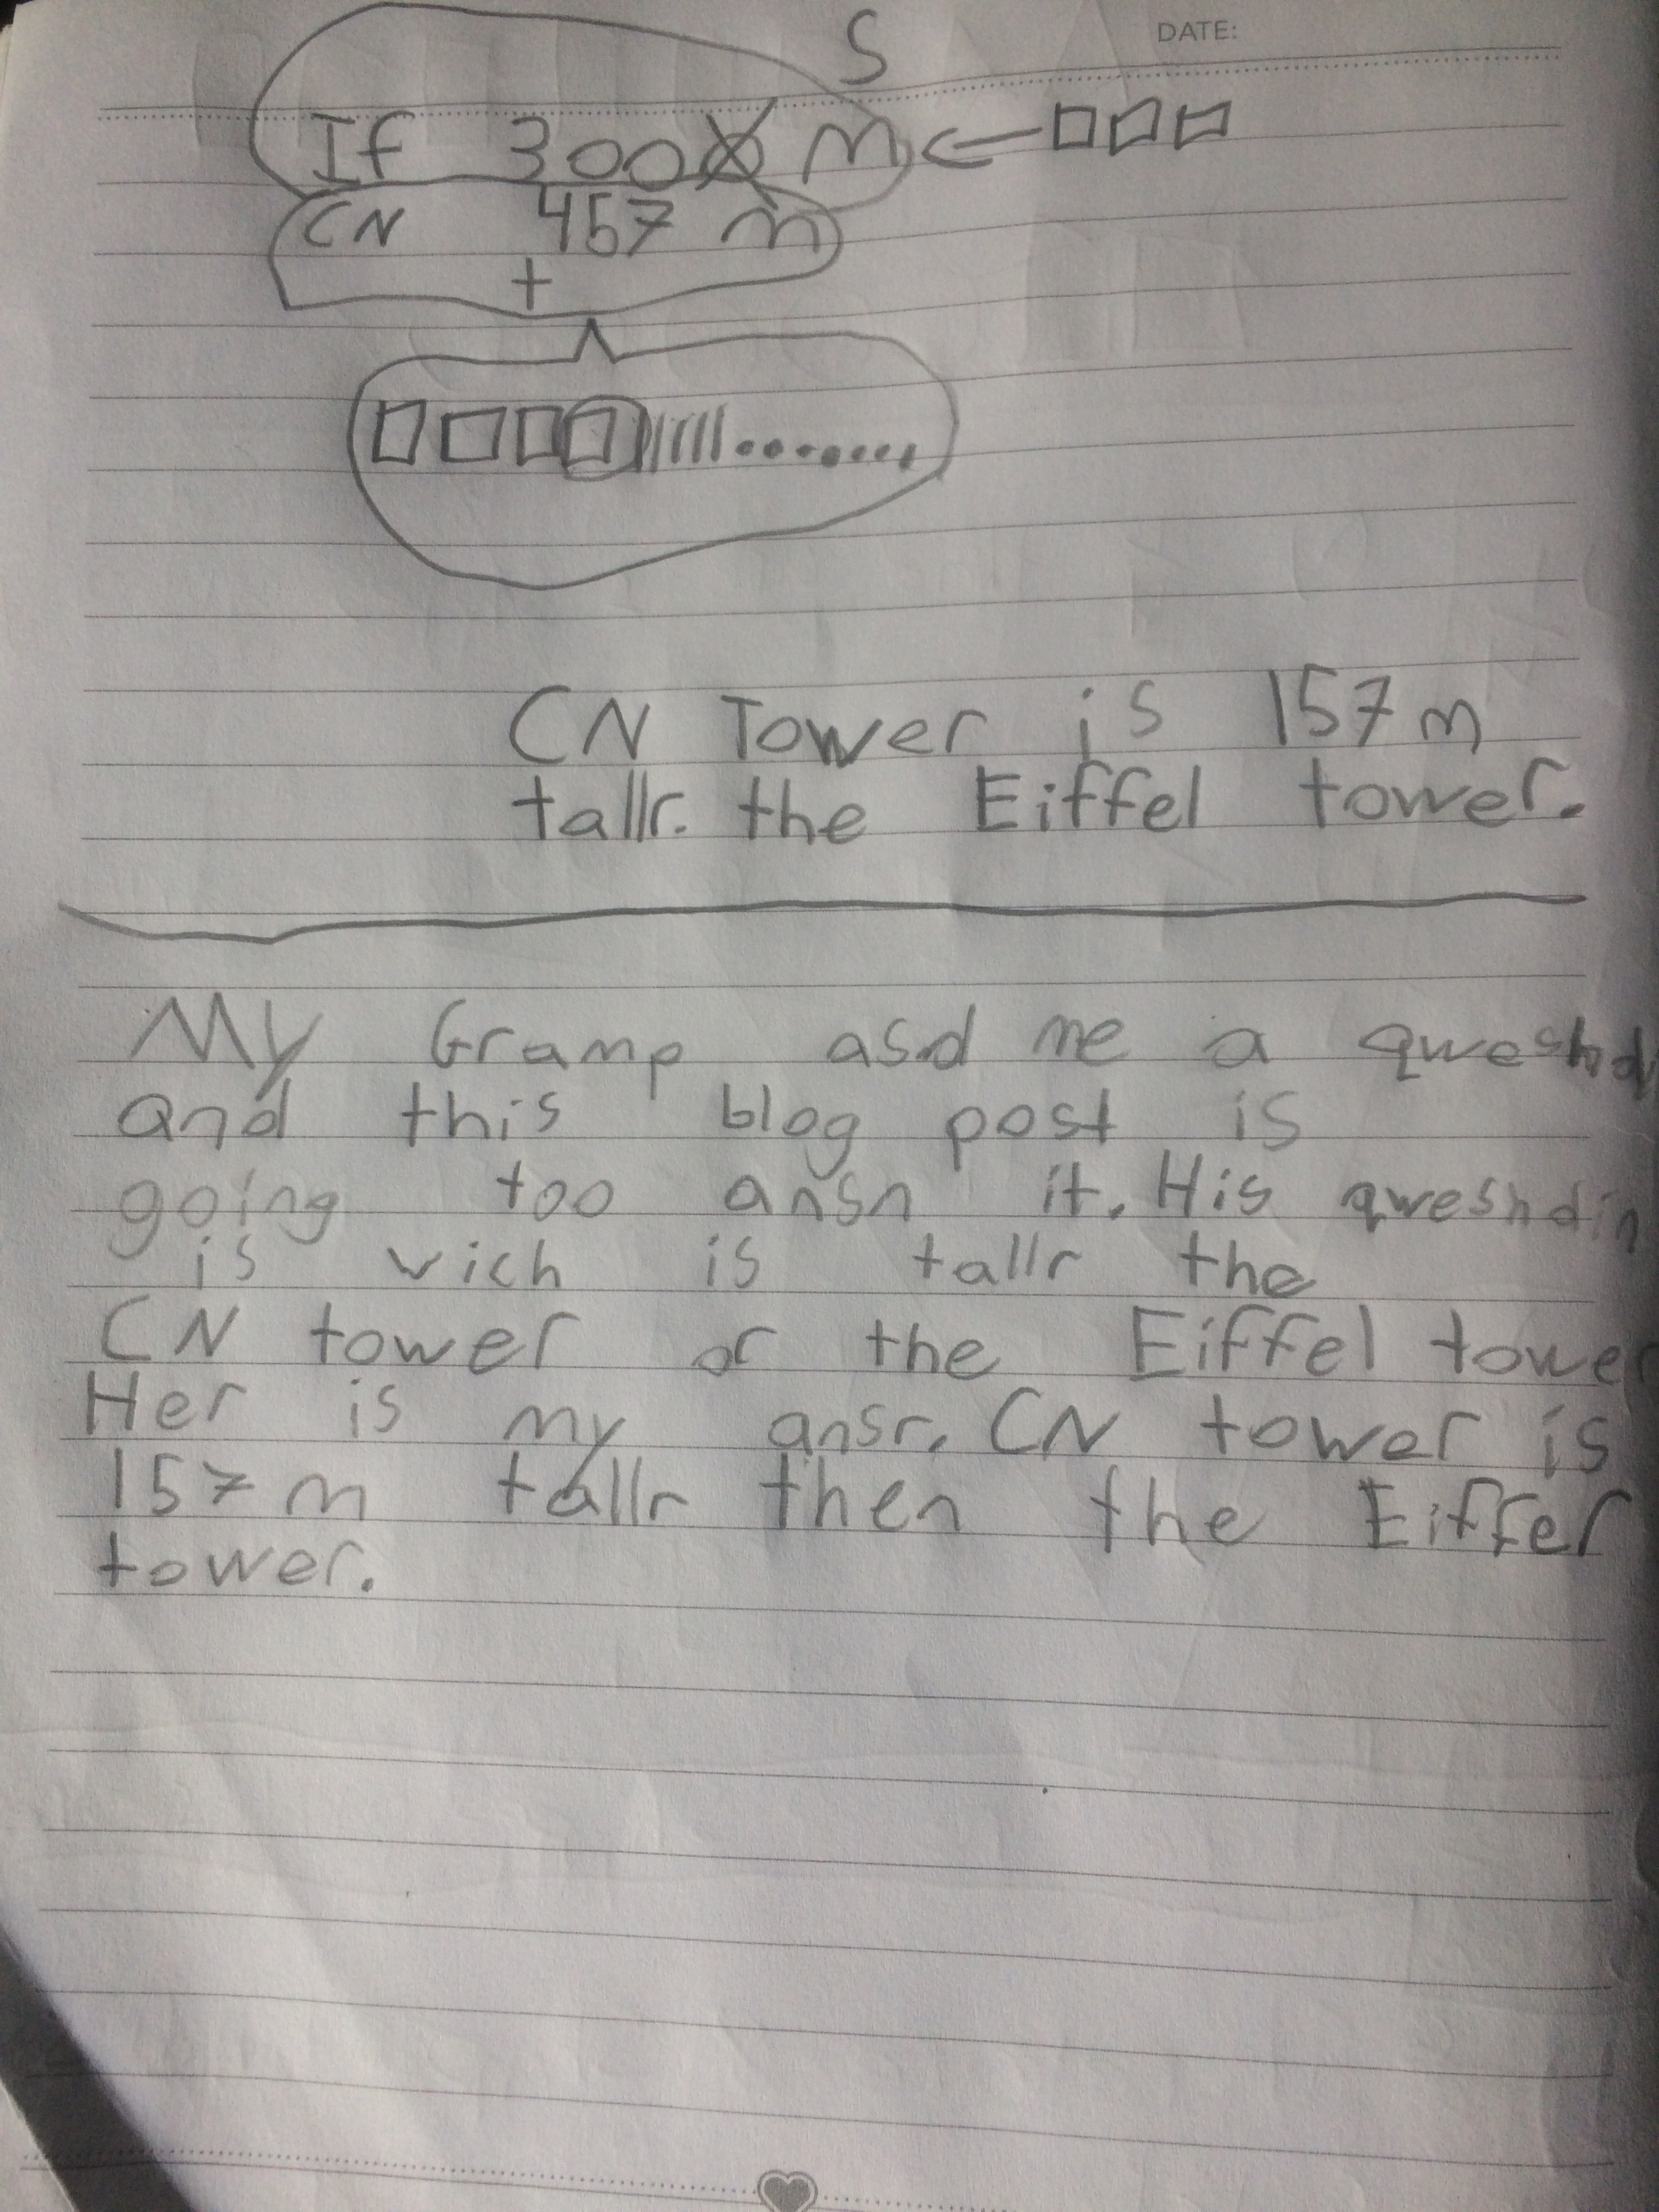 DATE:
S
If 300 M
CN 457 m
+
CN Tower is 157 m
tallr. the Eiffel tower.
My Gramp asd me a qweshd
and this blog post is
going too ansn it. His qweshdin
is vich is tallr the
CN tower or the Eiffel tower
Her is my ansr. CN tower is
157 m tallr then the Eiffel
tower.